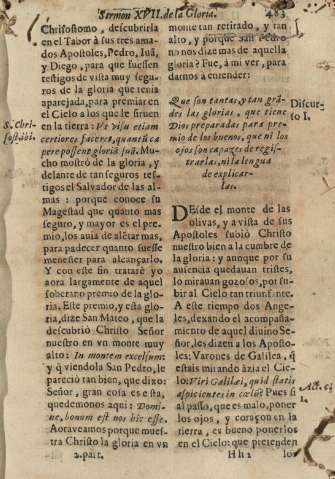 Sermon XVII. de la Gloria. 483
Chrisostomo, descubrirla
en el Tabor à sus tres ama-
dos Apostoles, Pedro, Iuã,
y Diego, para que fuessen
testigos de vista muy segu-
ros de la gloria que tenia
aparejada, para premiar en
el Cielo a los que le siruen
en la tierra: Vt visu etiam
certiores faceret, quantũ ca
pere possent gloriã suã. Mu-
cho mostrò de la gloria, y
delante de tan seguros tes-
tigos el Salvador de las al-
mas: porque conoce su
Magestad que quanto mas
seguro, y mayor es el pre-
mio, los auia de alẽtar mas,
para padecer quanto fuesse
menester para alcançarlo.
Y con este fin tratarè yo
aora largamente de aquel
soberano premio de la glo-
ria. Este premio, y esta glo-
ria, dize San Mateo, que la
descubriò Christo Señor
nuestro en vn monte muy
alto: In montem excelsum:
y q̃ viendola San Pedro, le
pareciò tan bien, que dixo:
Señor, gran cosa es esta,
quedemonos aqui: Domi-
ne, bonum est nos hic esse.
Aora veamos porque mues-
tra Christo la gloria en vn
2. part.
S. Chri-
sost. ibi.
monte tan retirado, y tan
alto, y porque San Pedro
no nos dize mas de aquella
gloria? Fue, à mi ver, para
darnos à entender:
Que son tantas, y tan grã-
des las glorias, que tiene
Dios preparadas para pre-
mio de los buenos, que ni los
ojos son capazes de regis-
trarlas, ni la lengua
de explicar-
las.
Discur-
so I.
DEsde el monte de las
olivas, y a vista de sus
Apostoles subiò Christo
nuestro bien a la cumbre de
la gloria: y aunque por su
ausencia quedauan tristes,
lo mirauan gozosos, por su-
bir al Cielo tan triunfante.
A este tiempo dos Ange-
les, dexando el acompaña-
miento de aquel divino Se-
ñor, les dizen a los Aposto-
les: Varones de Galilea, q̃
estais mirando àzia el Cie-
lo: Viri Galilæi, quid statis
aspicientes in cœlũ? Pues si
al passo, que es malo, poner
los ojos, y coraçon en la
tierra, es bueno ponerlos
en el Cielo: que pretenden
Act. c. 1
Hh 2 los